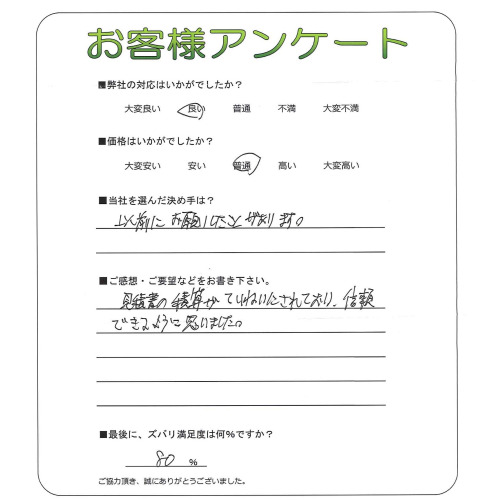 お客様アンケート
■弊社の対応はいかがでしたか？
大変良い 良い 普通 不満 大変不満
■価格はいかがでしたか？
大変安い 安い 普通 高い 大変高い
■当社を選んだ決め手は？
以前にお願いしたことがあります。
■ご感想・ご要望などをお書き下さい。
見積書の積算がていねいにされており、信頼
できるように思いました。
■最後に、ズバリ満足度は何％ですか？
80 ％
ご協力頂き、誠にありがとうございました。